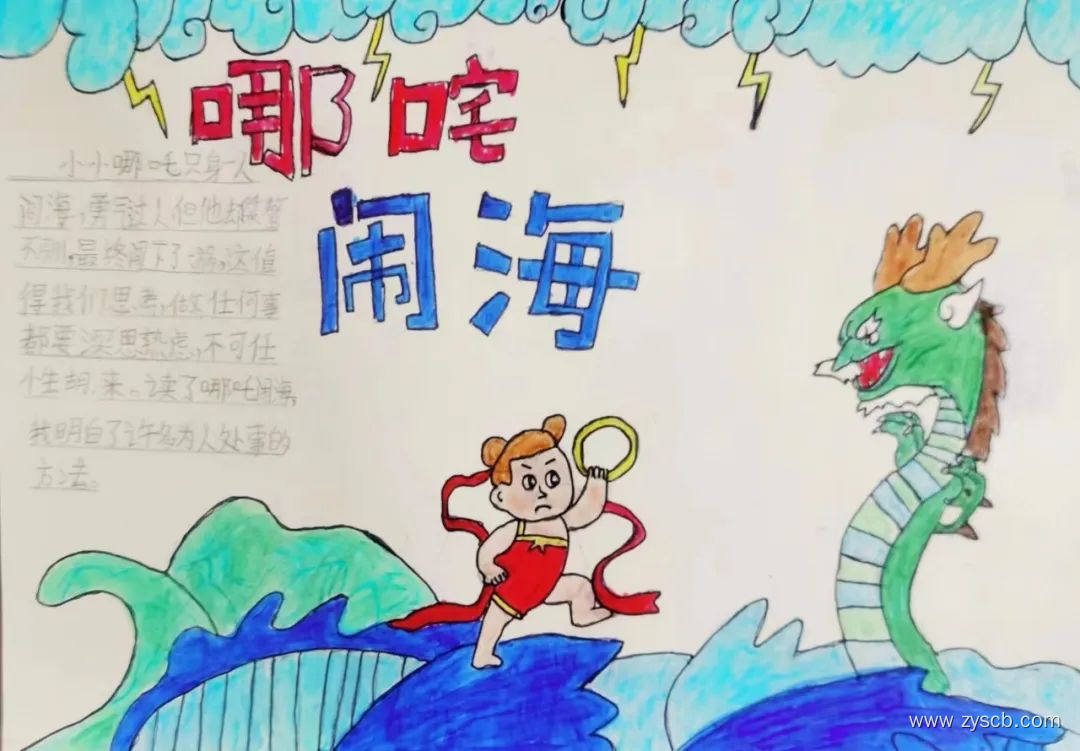 哪咤
闹海
小小哪吒只身一人
闹海,勇气过人但他却
不刚,最终留下了 这值
得我们思考,做任何事
都要深思熟虑,不可任
性胡来。读了哪吒闹海,
我明白了许多为人处事的
方法。
www.zyscb.com